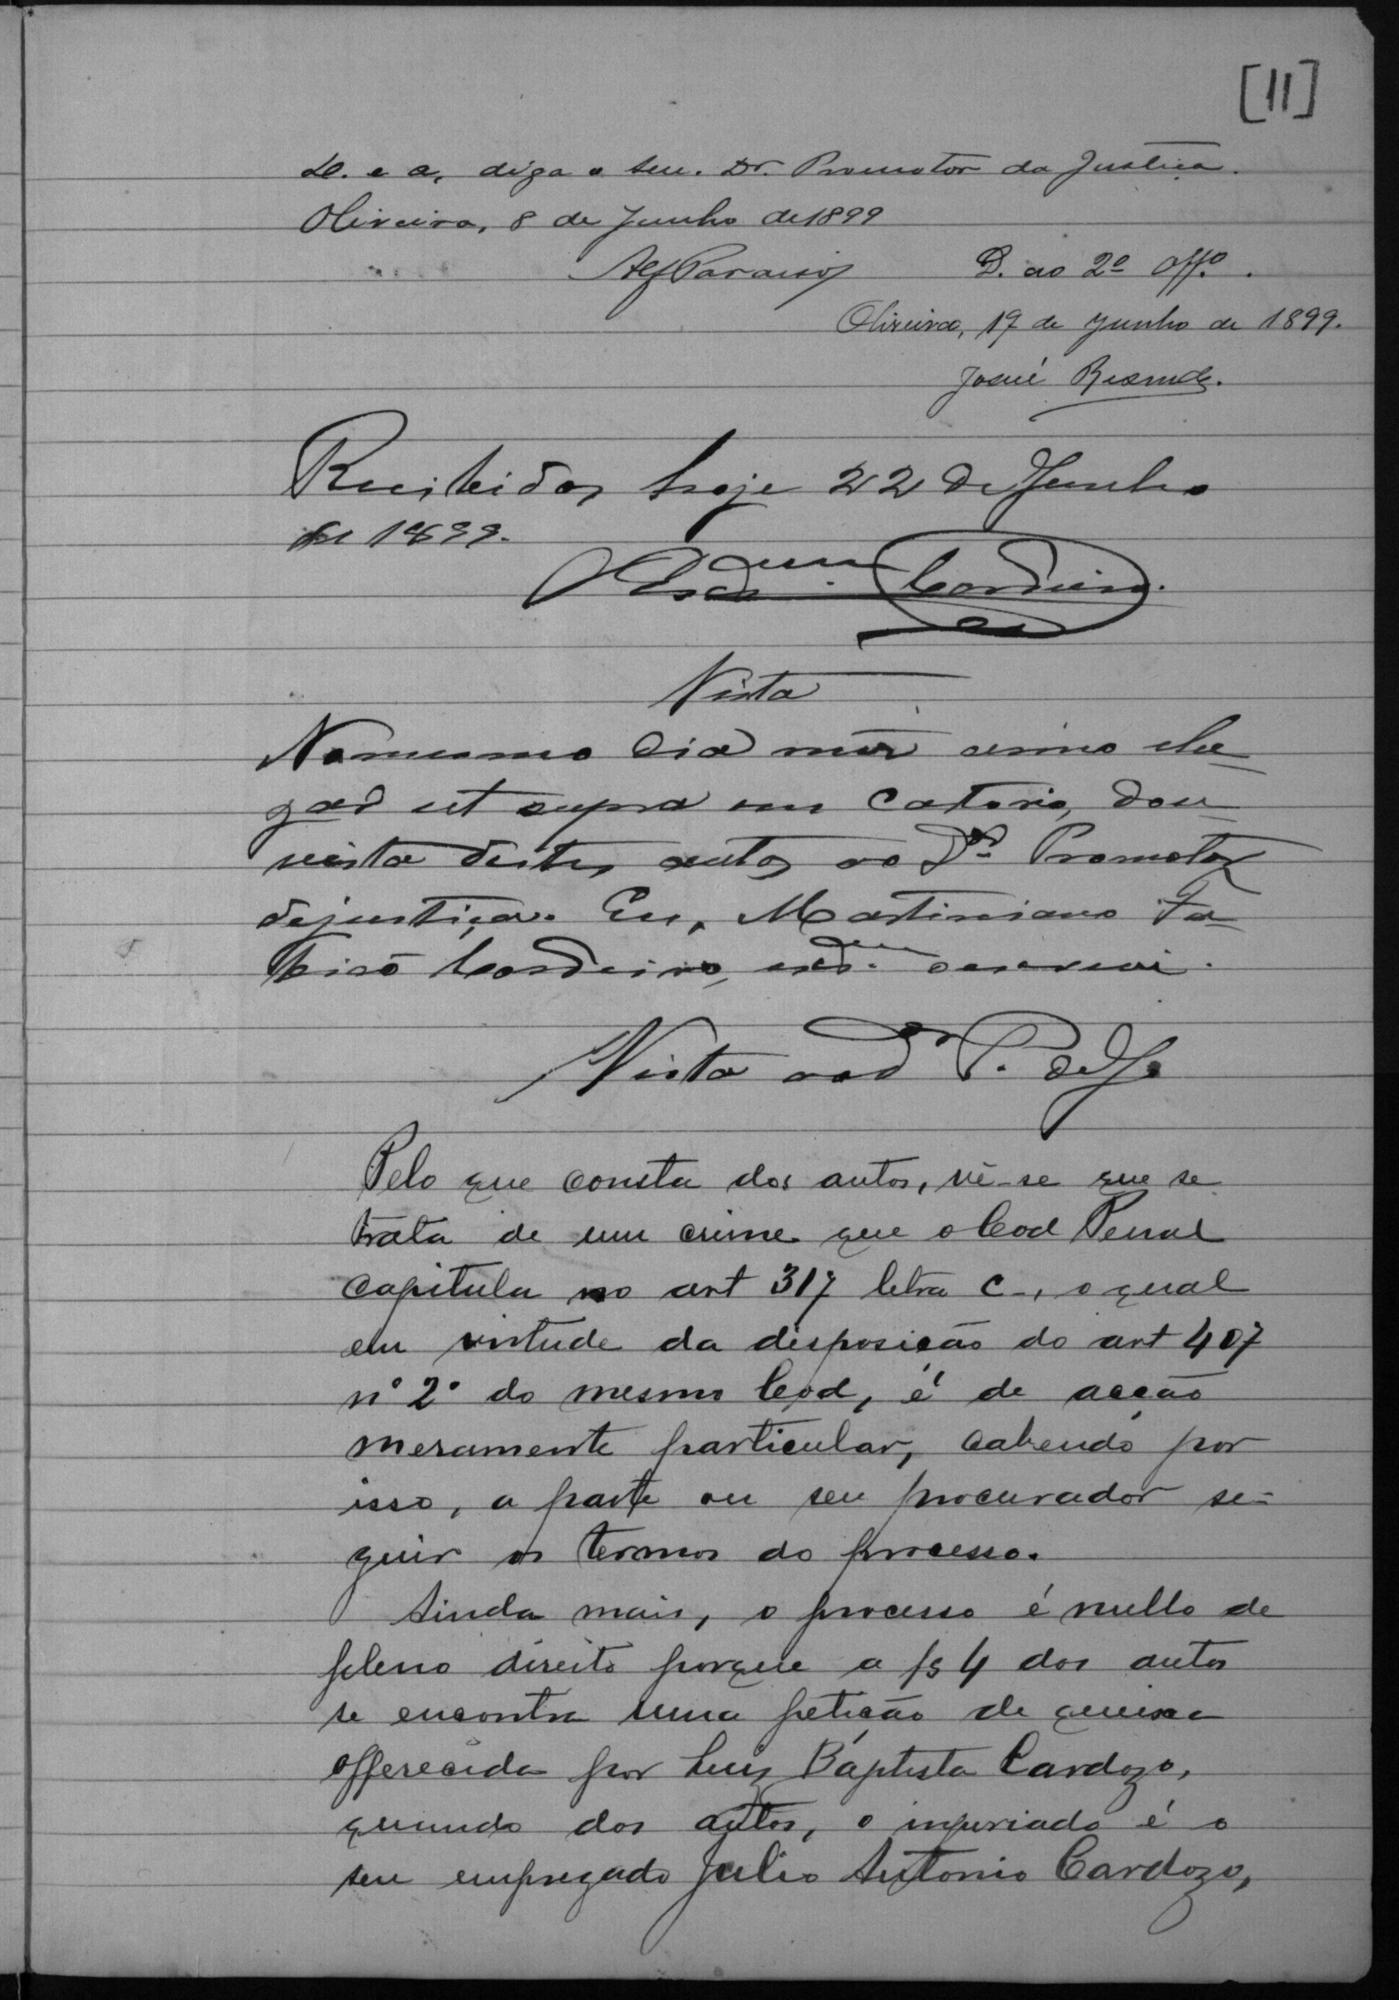 [11]
D. e a, diga o Snr. Dr. Promotor da Justiça.
Oliveira, 8 de Junho de 1899
D. ao 2º Offº.
Oliveira, 17 de Junho de 1899.
Josué Resende.
Recibidos hoje 22 de Junho
de 1899.
Cordeiro.
Vista
No mesmo dia mez anno e lu-
gar ut supra em Catorio, dou
vista destes autos ao Dr. Promotor
de justiça. Eu, Martiniano Fa-
bicio Cordeiro, escrevi.
Vista ao Dr P. de J.
Pelo que consta dos autos, vê-se que se
trata de um crime que o Cod Penal
capitula no art 317 letra C-, o qual
em virtude da disposição do art 407
nº 2º do mesmo Cod, é de acção
meramente particular, cabendo por
isso, a parte ou seu procurador se-
guir os termos do processo.
Ainda mais, o processo é nullo de
pleno direito porque a fs 4 dos autos
se encontra uma petição de queixa
offerecida por Luiz Baptista Cardozo,
quando dos autos, o injuriado é o
seu empregado Julio Antonio Cardozo,